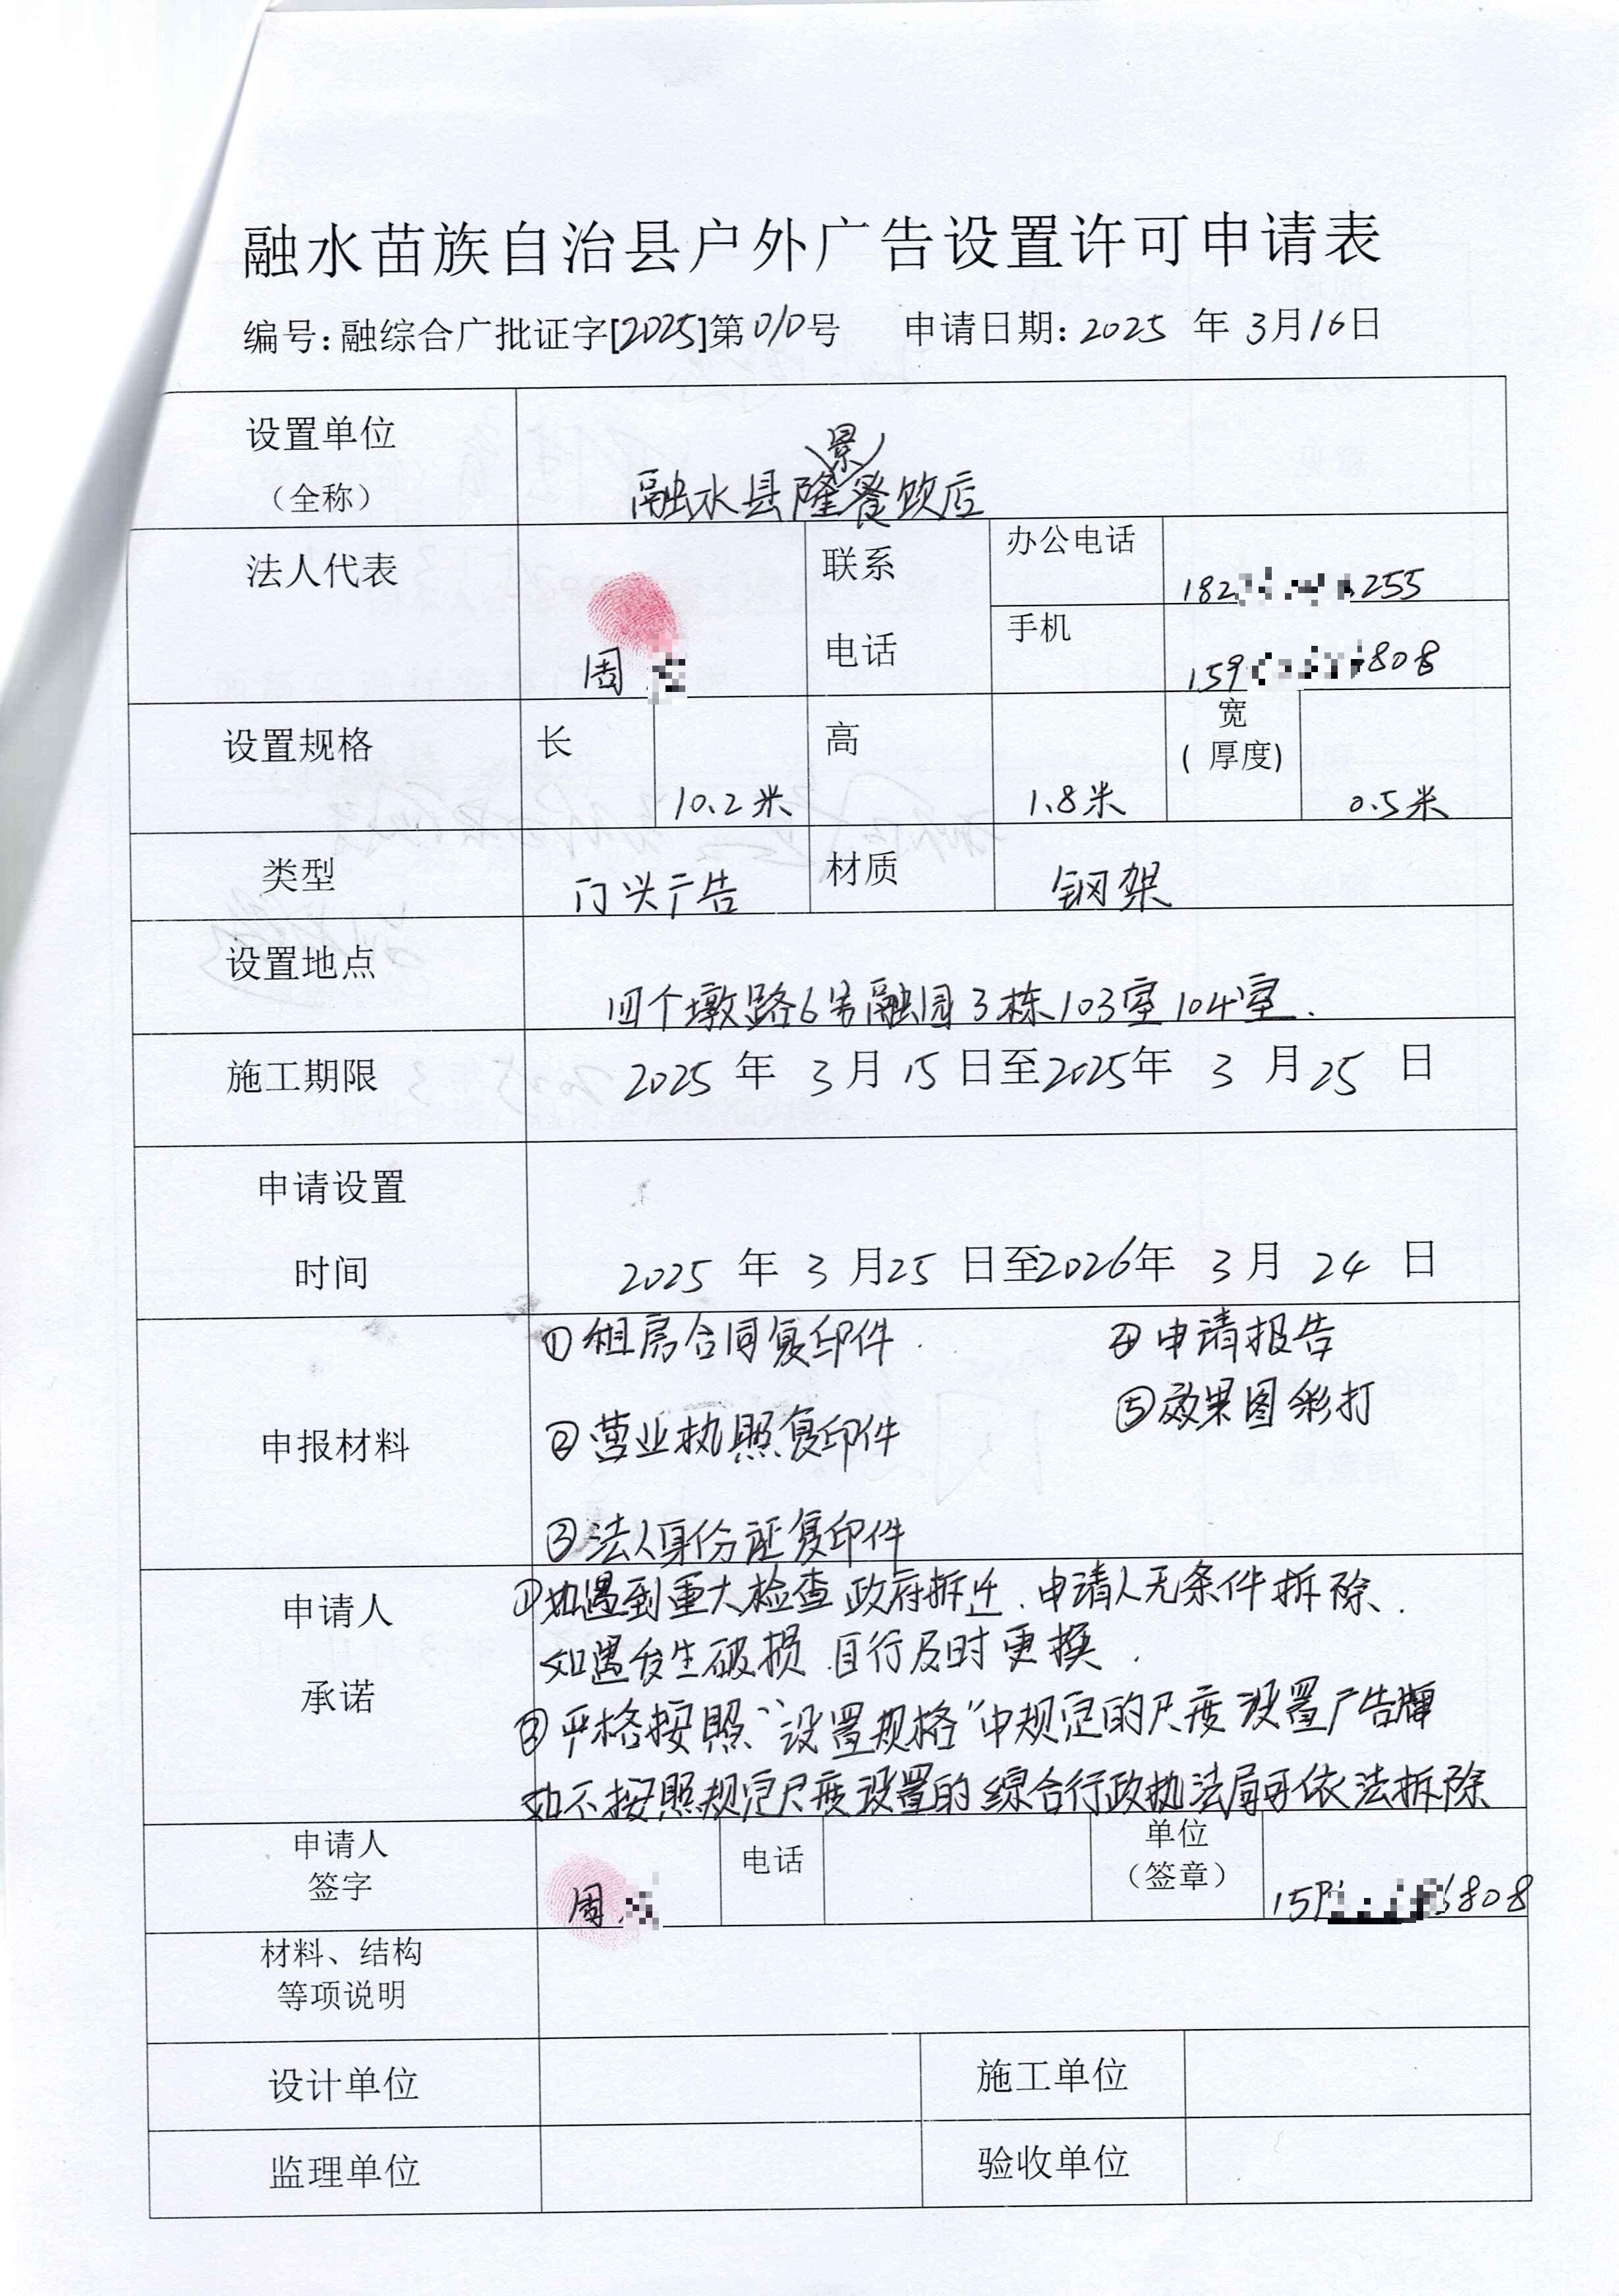 融水苗族自治县户外广告设置许可申请表
编号:融综合广批证字[2025]第010号 申请日期:2025 年 3月16日
设置单位
(全称)
融水县隆景餐饮店
法人代表
周
联系
电话
办公电话
182 255
手机
159 808
设置规格
长
10.2米
高
1.8米
宽
(厚度)
0.5米
类型
门头广告
材质
钢架
设置地点
四个墩路6号融园3栋103室104室.
施工期限
2025 年 3月 15 日至2025年 3 月 25 日
申请设置
时间
2025 年 3 月25 日至2026年 3月 24 日
申报材料
①租房合同复印件. ④申请报告
⑤效果图彩打
②营业执照复印件
③法人身份证复印件
申请人
承诺
①如遇到重大检查政府拆迁、申请人无条件拆除.
如遇发生破损 自行及时更换.
②严格按照“设置规格”中规定的尺度设置广告牌
如不按照规定尺度设置的综合行政执法局可依法拆除
申请人
签字
周
电话
单位
(签章)
159 808
材料、结构
等项说明
设计单位
施工单位
监理单位
验收单位